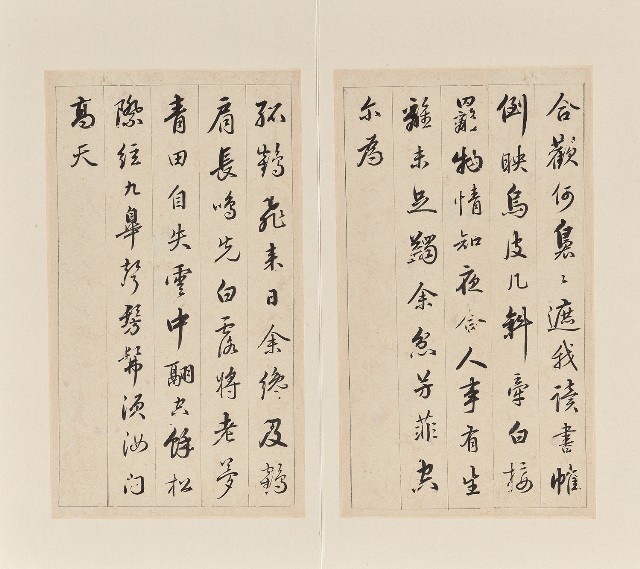 合歡何裊々遮我讀書帷
倒映烏皮几斜牽白接
䍦物情知夜合人事有生
離未足蠲余忿芳菲空
尔為
孤鶴飛來日余纔及鶴
肩長鳴先白露將老夢
青田自失雲中翮空餘松
際絃九皋聲髣髴須汝向
高天